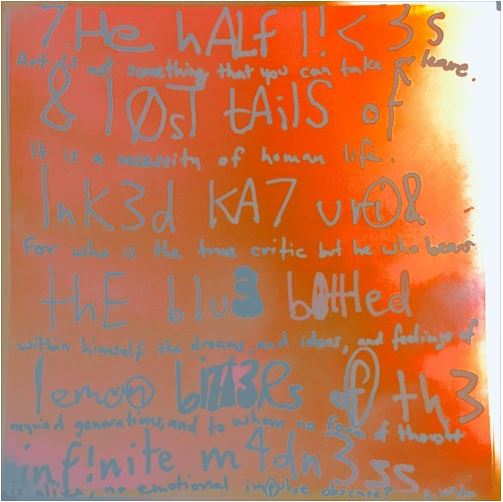 7He hALf l!<'3s
Art is not something that you can take or leave.
& l0sT tAilS of
It is a necessity of human life.
InK3d KA7 urio&
For who is the true critic but he who bears
thE blu3 b0ttled
within himself the dreams, and ideas, and feelings of
lemon bitt3Rs of th3
myriad generations, and to whom no form of thought
inf!nite m4dn3ss
is alien, no emotional impulse obscure?